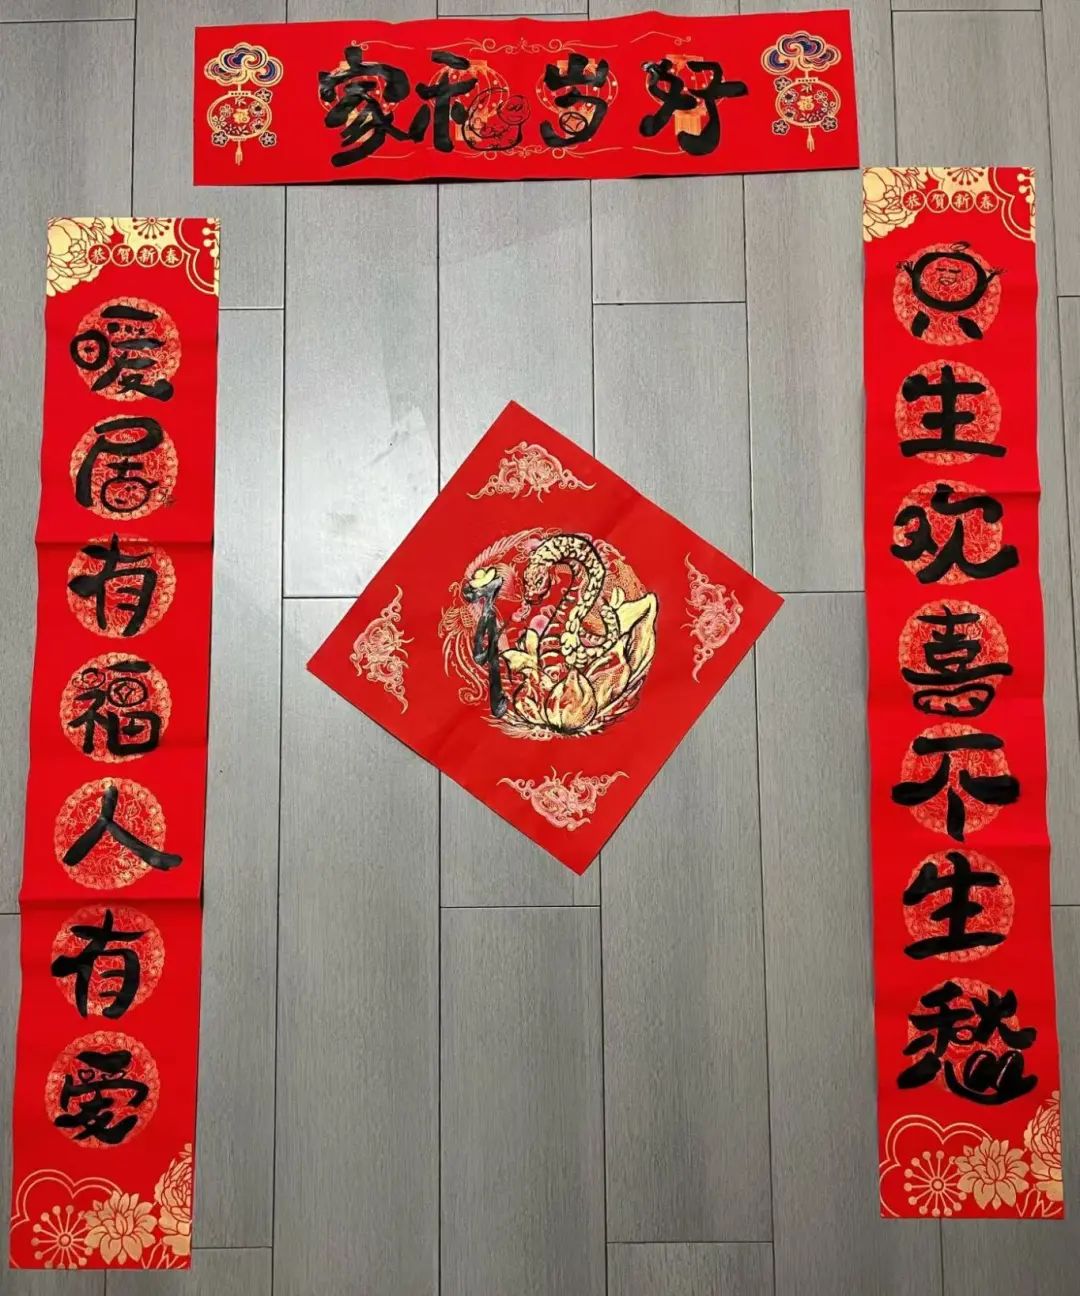 家和岁好
福
福
恭賀新春
只生欢喜不生愁
恭賀新春
暖居有福人有爱